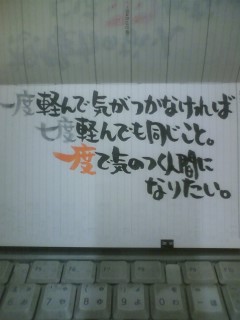 一度転んで気がつかなければ
七度転んでも同じこと。
一度で気のつく人間に
なりたい。